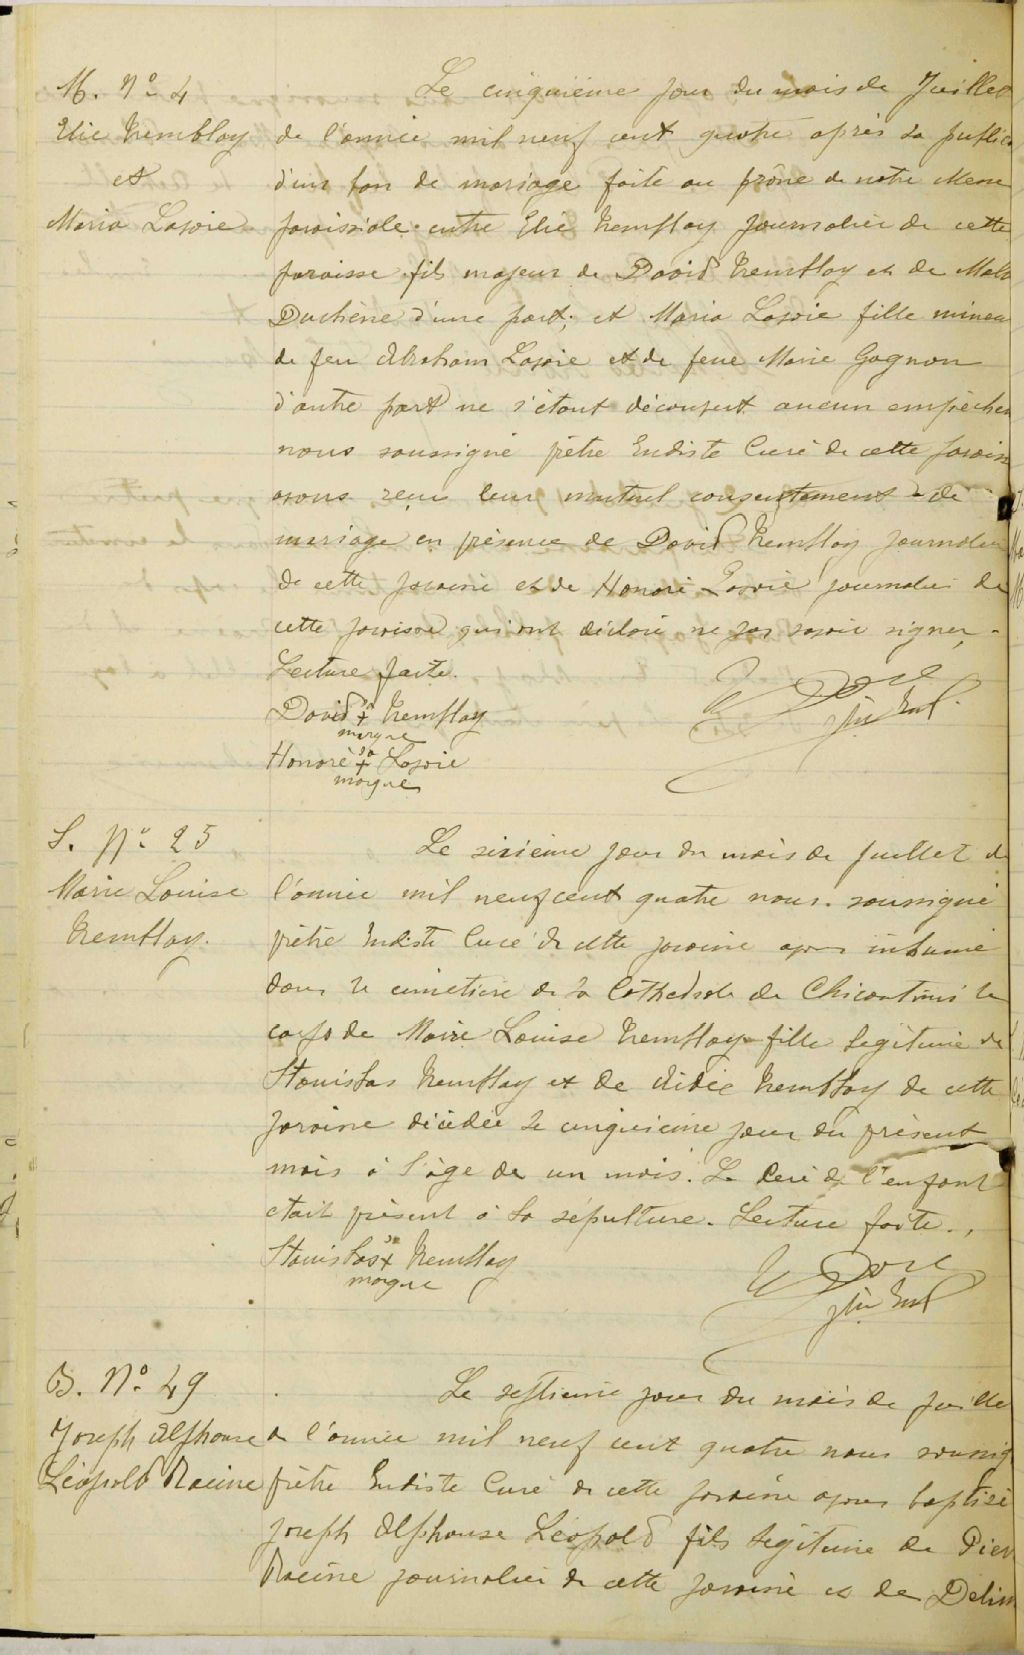 M. No 4
Elie Tremblay
et
Maria Lavoie
Le cinquième jour du mois de Juillet
de l'année mil neuf cent quatre après la public
d'un ban de mariage faite au prône de notre Messe
paroissiale entre Elie Tremblay journalier de cette
paroisse fils majeur de David Tremblay et de Malv
Duchène d'une part; et Maria Lavoie fille mineu
de feu Abraham Lavoie et de feue Marie Gagnon
d'autre part ne s'étant découvert aucun empêchem
nous soussigné prêtre Eudiste Curé de cette paroiss
avons reçu leur mutuel consentement de
mariage en présence de David Tremblay journalier
de cette paroisse et de Honoré Lavoie journalier de
cette paroisse qui ont déclaré ne pas savoir signer,
Lecture faite.
David sa + Tremblay
marque
Honoré sa + Lavoie
marque
S. No 25
Marie Louise
Tremblay.
Le sixième jour du mois de Juillet de
l'année mil neuf cent quatre nous soussigné
prêtre Eudiste Curé de cette paroisse avons inhumé
dans le cimetière de la Cathédrale de Chicoutimi le
corps de Marie Louise Tremblay fille légitime de
Stanislas Tremblay et de Tremblay de cette
paroisse décédée le cinquième jour du présent
mois à l'âge de un mois. Le Père de l'enfant
était présent à la sépulture. Lecture faite.,
Stanislas sa + Tremblay
marque
B. No 49
Joseph Alphonse
Léopold Racine
Le septième jour du mois de Juille
de l'année mil neuf cent quatre nous soussig
prêtre Eudiste Curé de cette paroisse avons baptisé
Joseph Alphonse Léopold fils légitime de Pier
Racine journalier de cette paroisse et de Delim